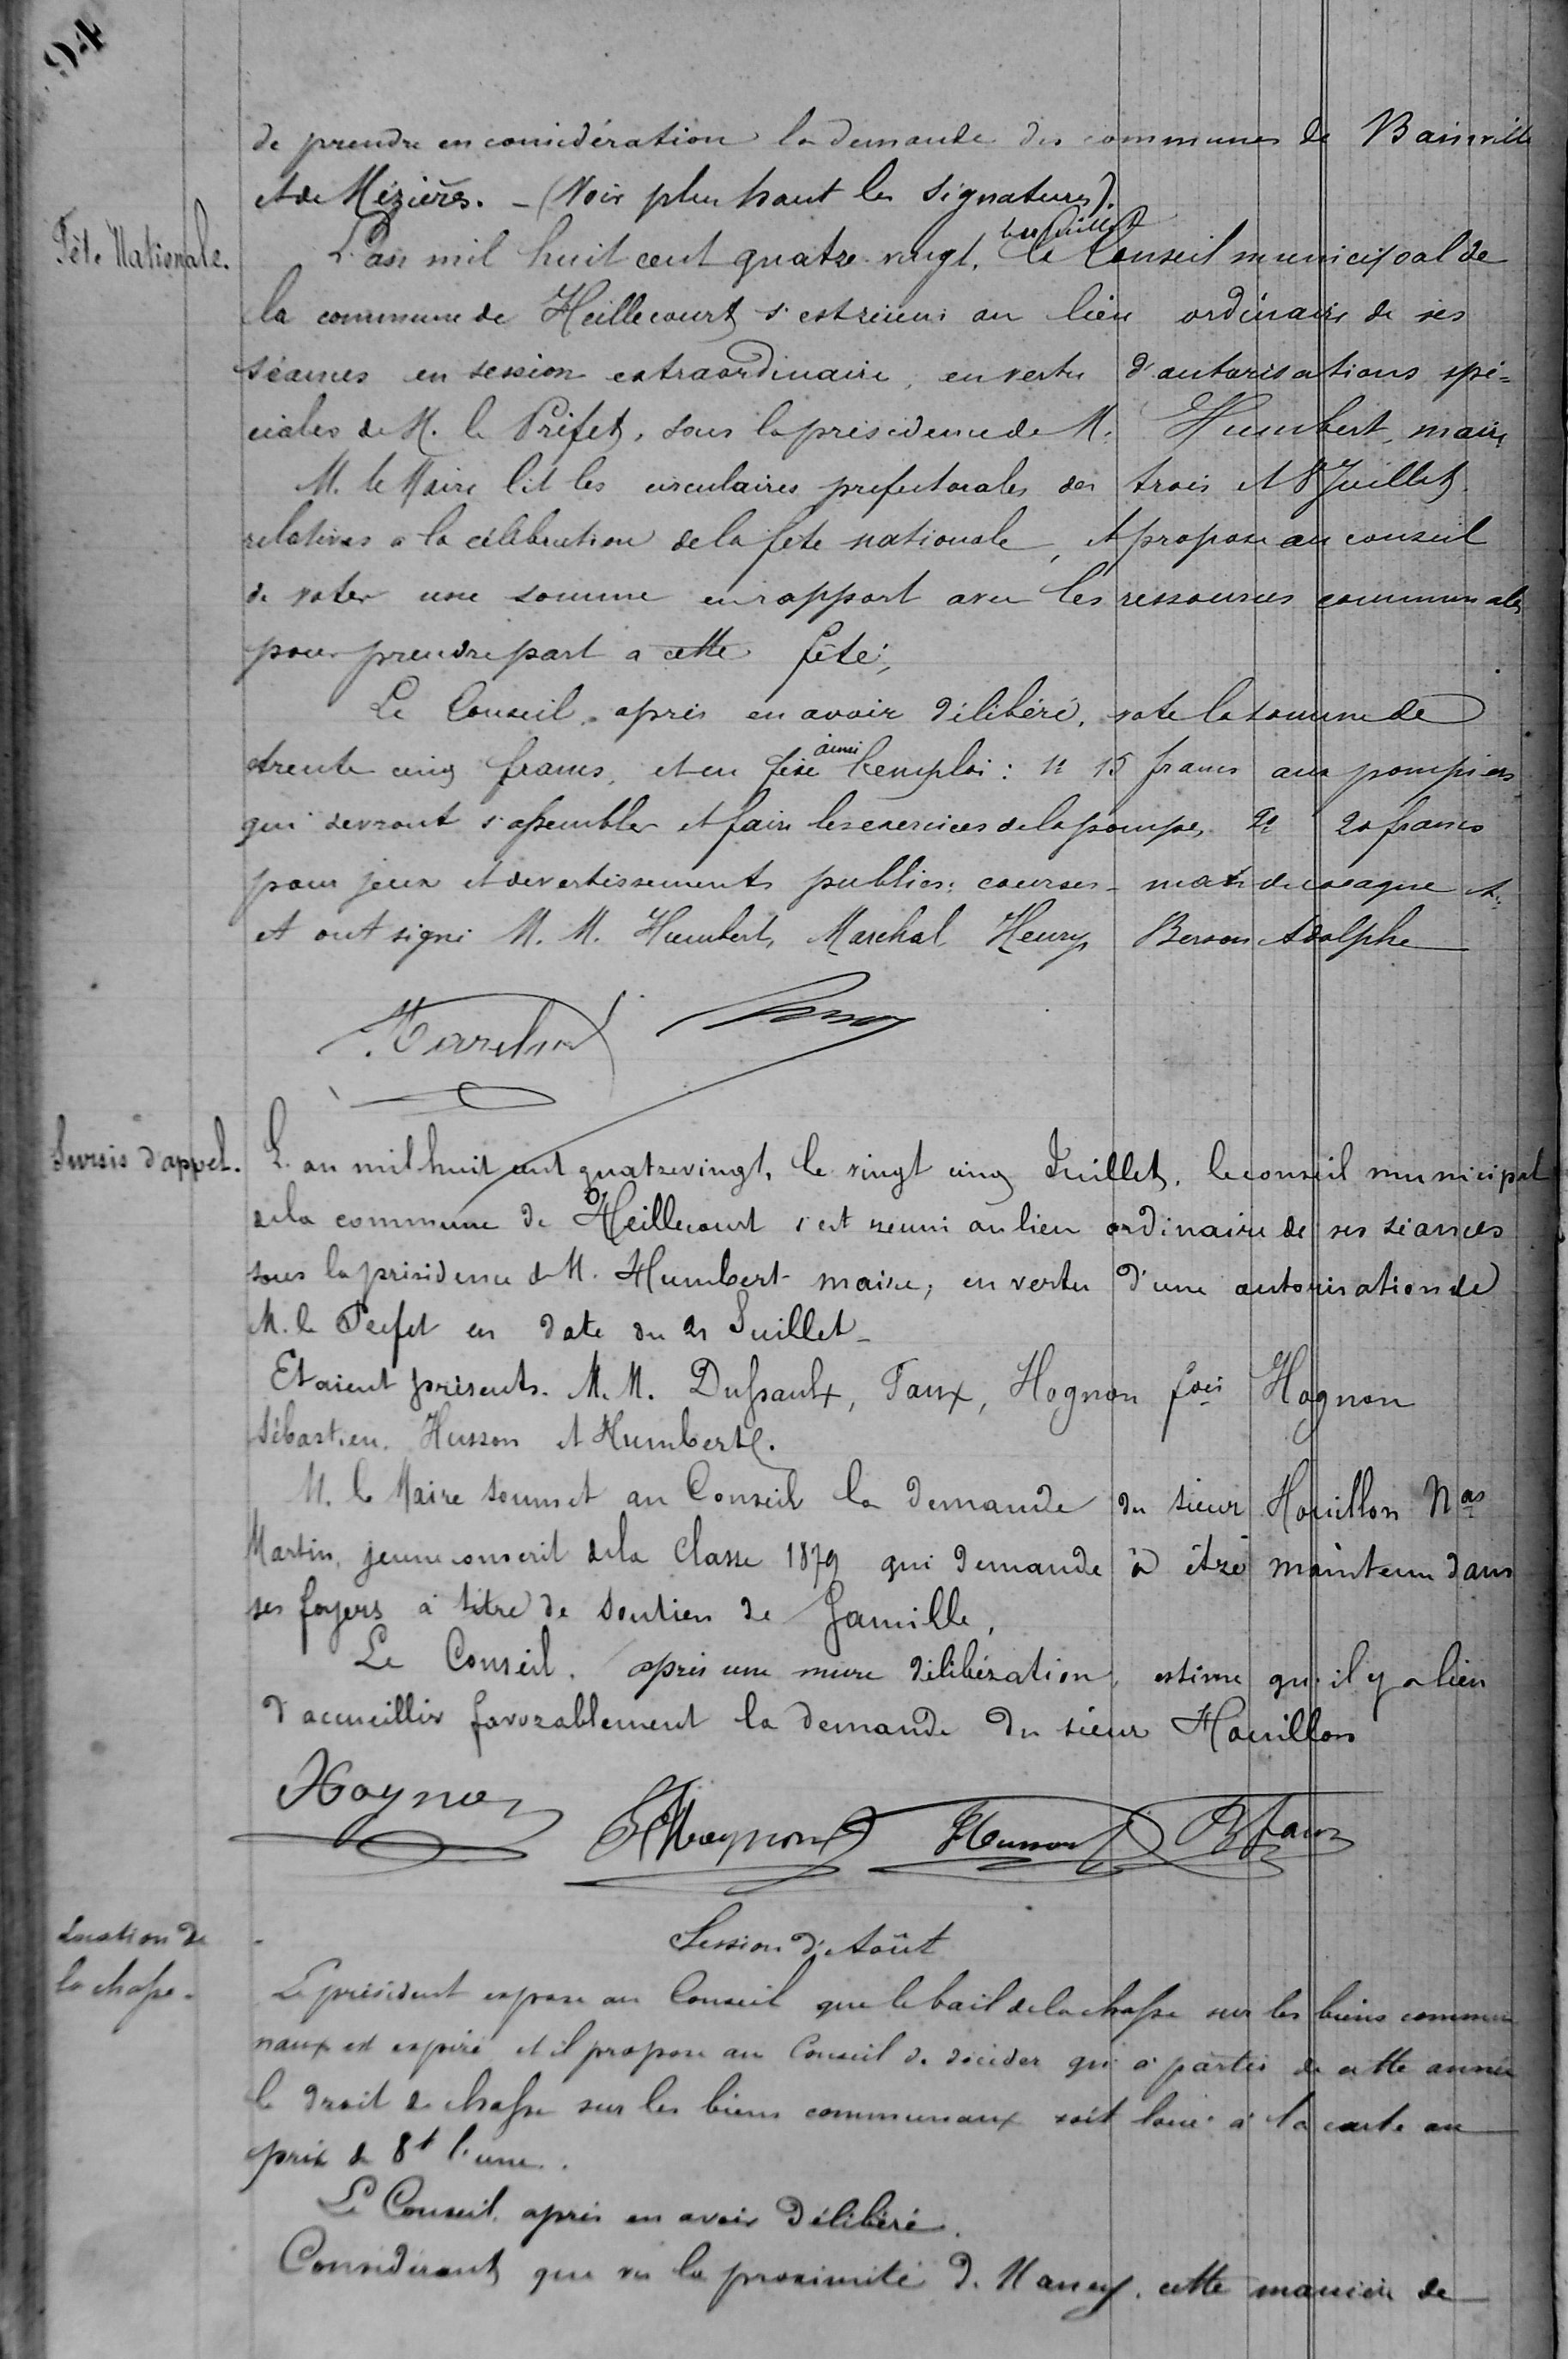 94
de prendre en considération la demande des communes de Bainville
et de Mézières. - (Voir plus haut les signatures).
Fête Nationale.
L'an mil huit cent quatre vingt, le Juillet le Conseil municipal de
la commune de Heillecourt s'est réuni au lieu ordinaire de ses
séances en session extraordinaire, en vertu d'autorisations spé=
ciales de M. le Préfet, sous la présidence de M. Humbert, maire
M. le Maire lit les circulaires prefectorales des trois et 8 Juillet
relatives a la célébration de la fete nationale, et propose au conseil
de voter une somme en rapport avec les ressources communales
pour prendre part a cette fête;
Le Conseil, après en avoir délibéré, vote la somme de
trente cinq francs, et en fixe ainsi l'emploi : 1º 15 francs aux pompiers
qui devront s'assembler et faire les exercices de la pompe, 2º 20 francs
pour jeux et divertissements publics: courses - mats de cocagne et
et ont signé M. M. Humbert, Marchal Henry Berson Adolphe
Marchal
Sursis d'appel.
L'an mil huit cent quatre vingt, le vingt cinq Juillet, le conseil municipal
de la commune de Heillecourt s'est reuni au lieu ordinaire de ses séances
sous la présidence de M. Humbert maire, en vertu d'une autorisation de
M. le Prefet en date du 21 Juillet -
Etaient présents. M. M. Dussaulx, Taux, Hognon fois Hognon
Sébastien, Husson et Humbert.
M. le Maire soumet au Conseil la demande du sieur Houillon Nas
Martin, jeune conscrit de la classe 1879 qui demande à être maintenu dans
ses foyers à titre de soutien de famille,
Le Conseil, après une mure délibération, estime qu'il y a lieu
d'accueillir favorablement la demande du sieur Houillon
Hognon S Hognon Husson Taux
Location de
la chasse.
Session d'Août
Le président expose au Conseil que le bail de la chasse sur les biens commu
naux est expiré et il propose au Conseil de décider qu'à partir de cette année
le droit de chasse sur les biens communaux soit loué à la carte au
prix de 8f l'une.
Le Conseil, après en avoir délibéré.
Considérant que vu la proximité de Nancy, cette manière de